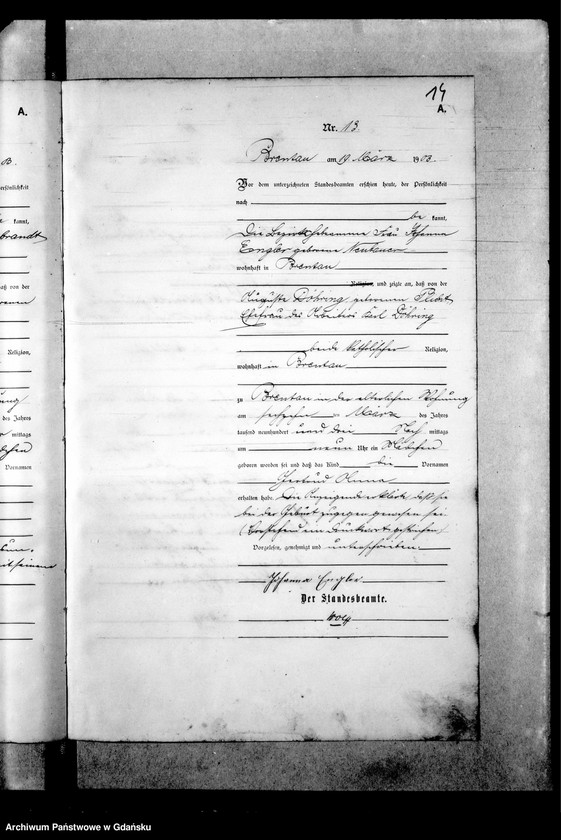 A.
B.
ersönlichkeit
kannt,
brandt
daß von der
Religion,
des Jahres
mittags
Vornamen
14
A.
Nr. 13
Brentau am 19 März 1903.
Vor dem unterzeichneten Standesbeamten erschien heute, der Persönlichkeit
nach
be kannt,
Die Bezirkshebamme Frau Johanna
Engler geborene
wohnhaft in Brentau
Religion, und zeigte an, daß von der
Auguste Döhring geborenen
Ehefrau des Arbeiters Karl Döhring
beide katholischer Religion,
wohnhaft in Brentau
zu Brentau in der elterlichen Wohnung
am sechzehnten März des Jahres
tausend neunhundert und drei Nach mittags
um neun Uhr ein Mädchen
geboren worden sei und daß das Kind die Vornamen
Gertrud Anna
erhalten habe. Die Anzeigende erklärte daß sie
bei der Geburt zugegen gewesen sei
(Vorstehend ein Druckwort gestrichen)
Vorgelesen, genehmigt und unterschrieben
Johanna Engler
Der Standesbeamte.
Archiwum Państwowe w Gdańsku